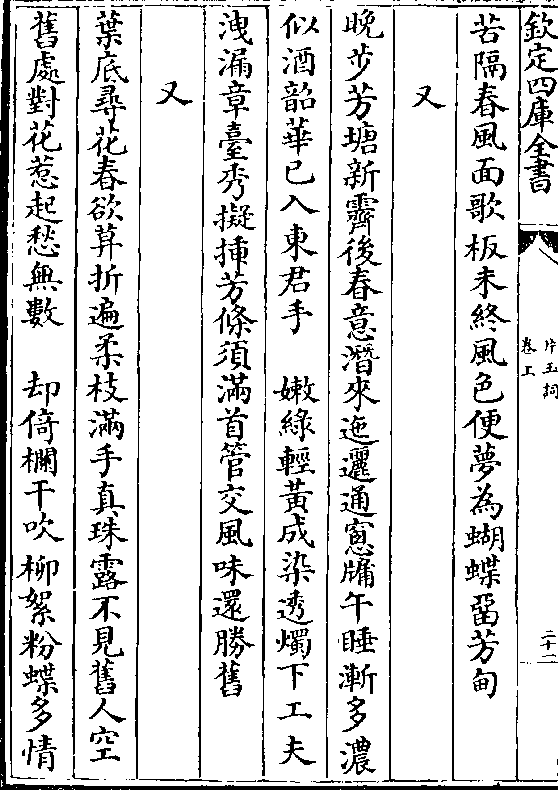 欽定四庫全書
片玉詞
卷上
二十二
苦隔春風面歌板未終風色便夢為蝴蝶留芳甸
又
晚步芳塘新霽後春意潛來迤邐通窻牖午睡漸多濃
似酒韶華已入東君手　嫩綠輕黃成染透燭下工夫
洩漏章臺秀擬揷芳條須滿首管交風味還勝舊
又
葉底尋花春欲莫折遍柔枝滿手真珠露不見舊人空
舊處對花惹起愁無數　却倚欄干吹柳絮粉蝶多情